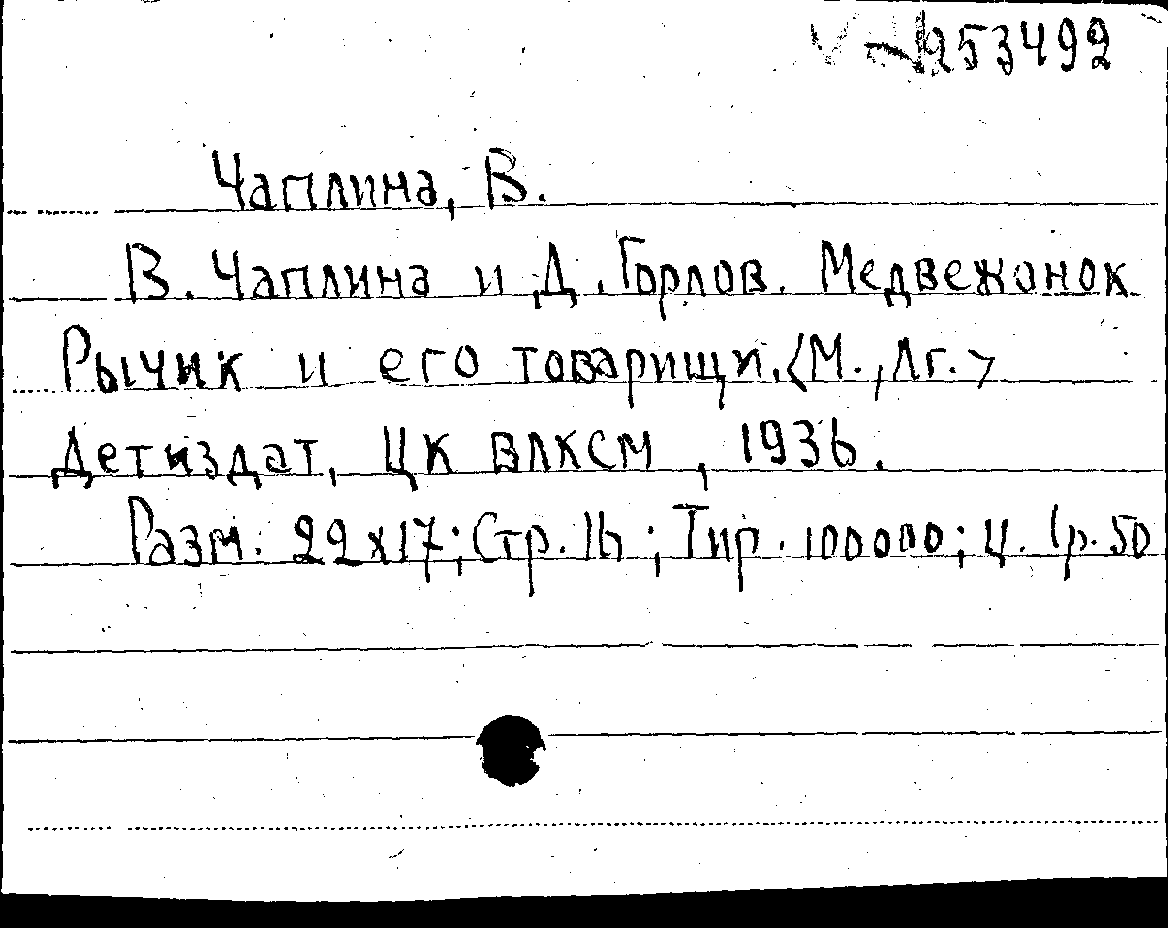 253492
Чаплина, В.
В. Чаплина и Д. Горлов. Медвежонок
Рычик и его товарищи. <М., Лг.>
Детиздат, ЦК ВЛКСМ, 1936.
Разм. 22х17; Стр. 16; Тир. 100000; Ц. 1р. 50